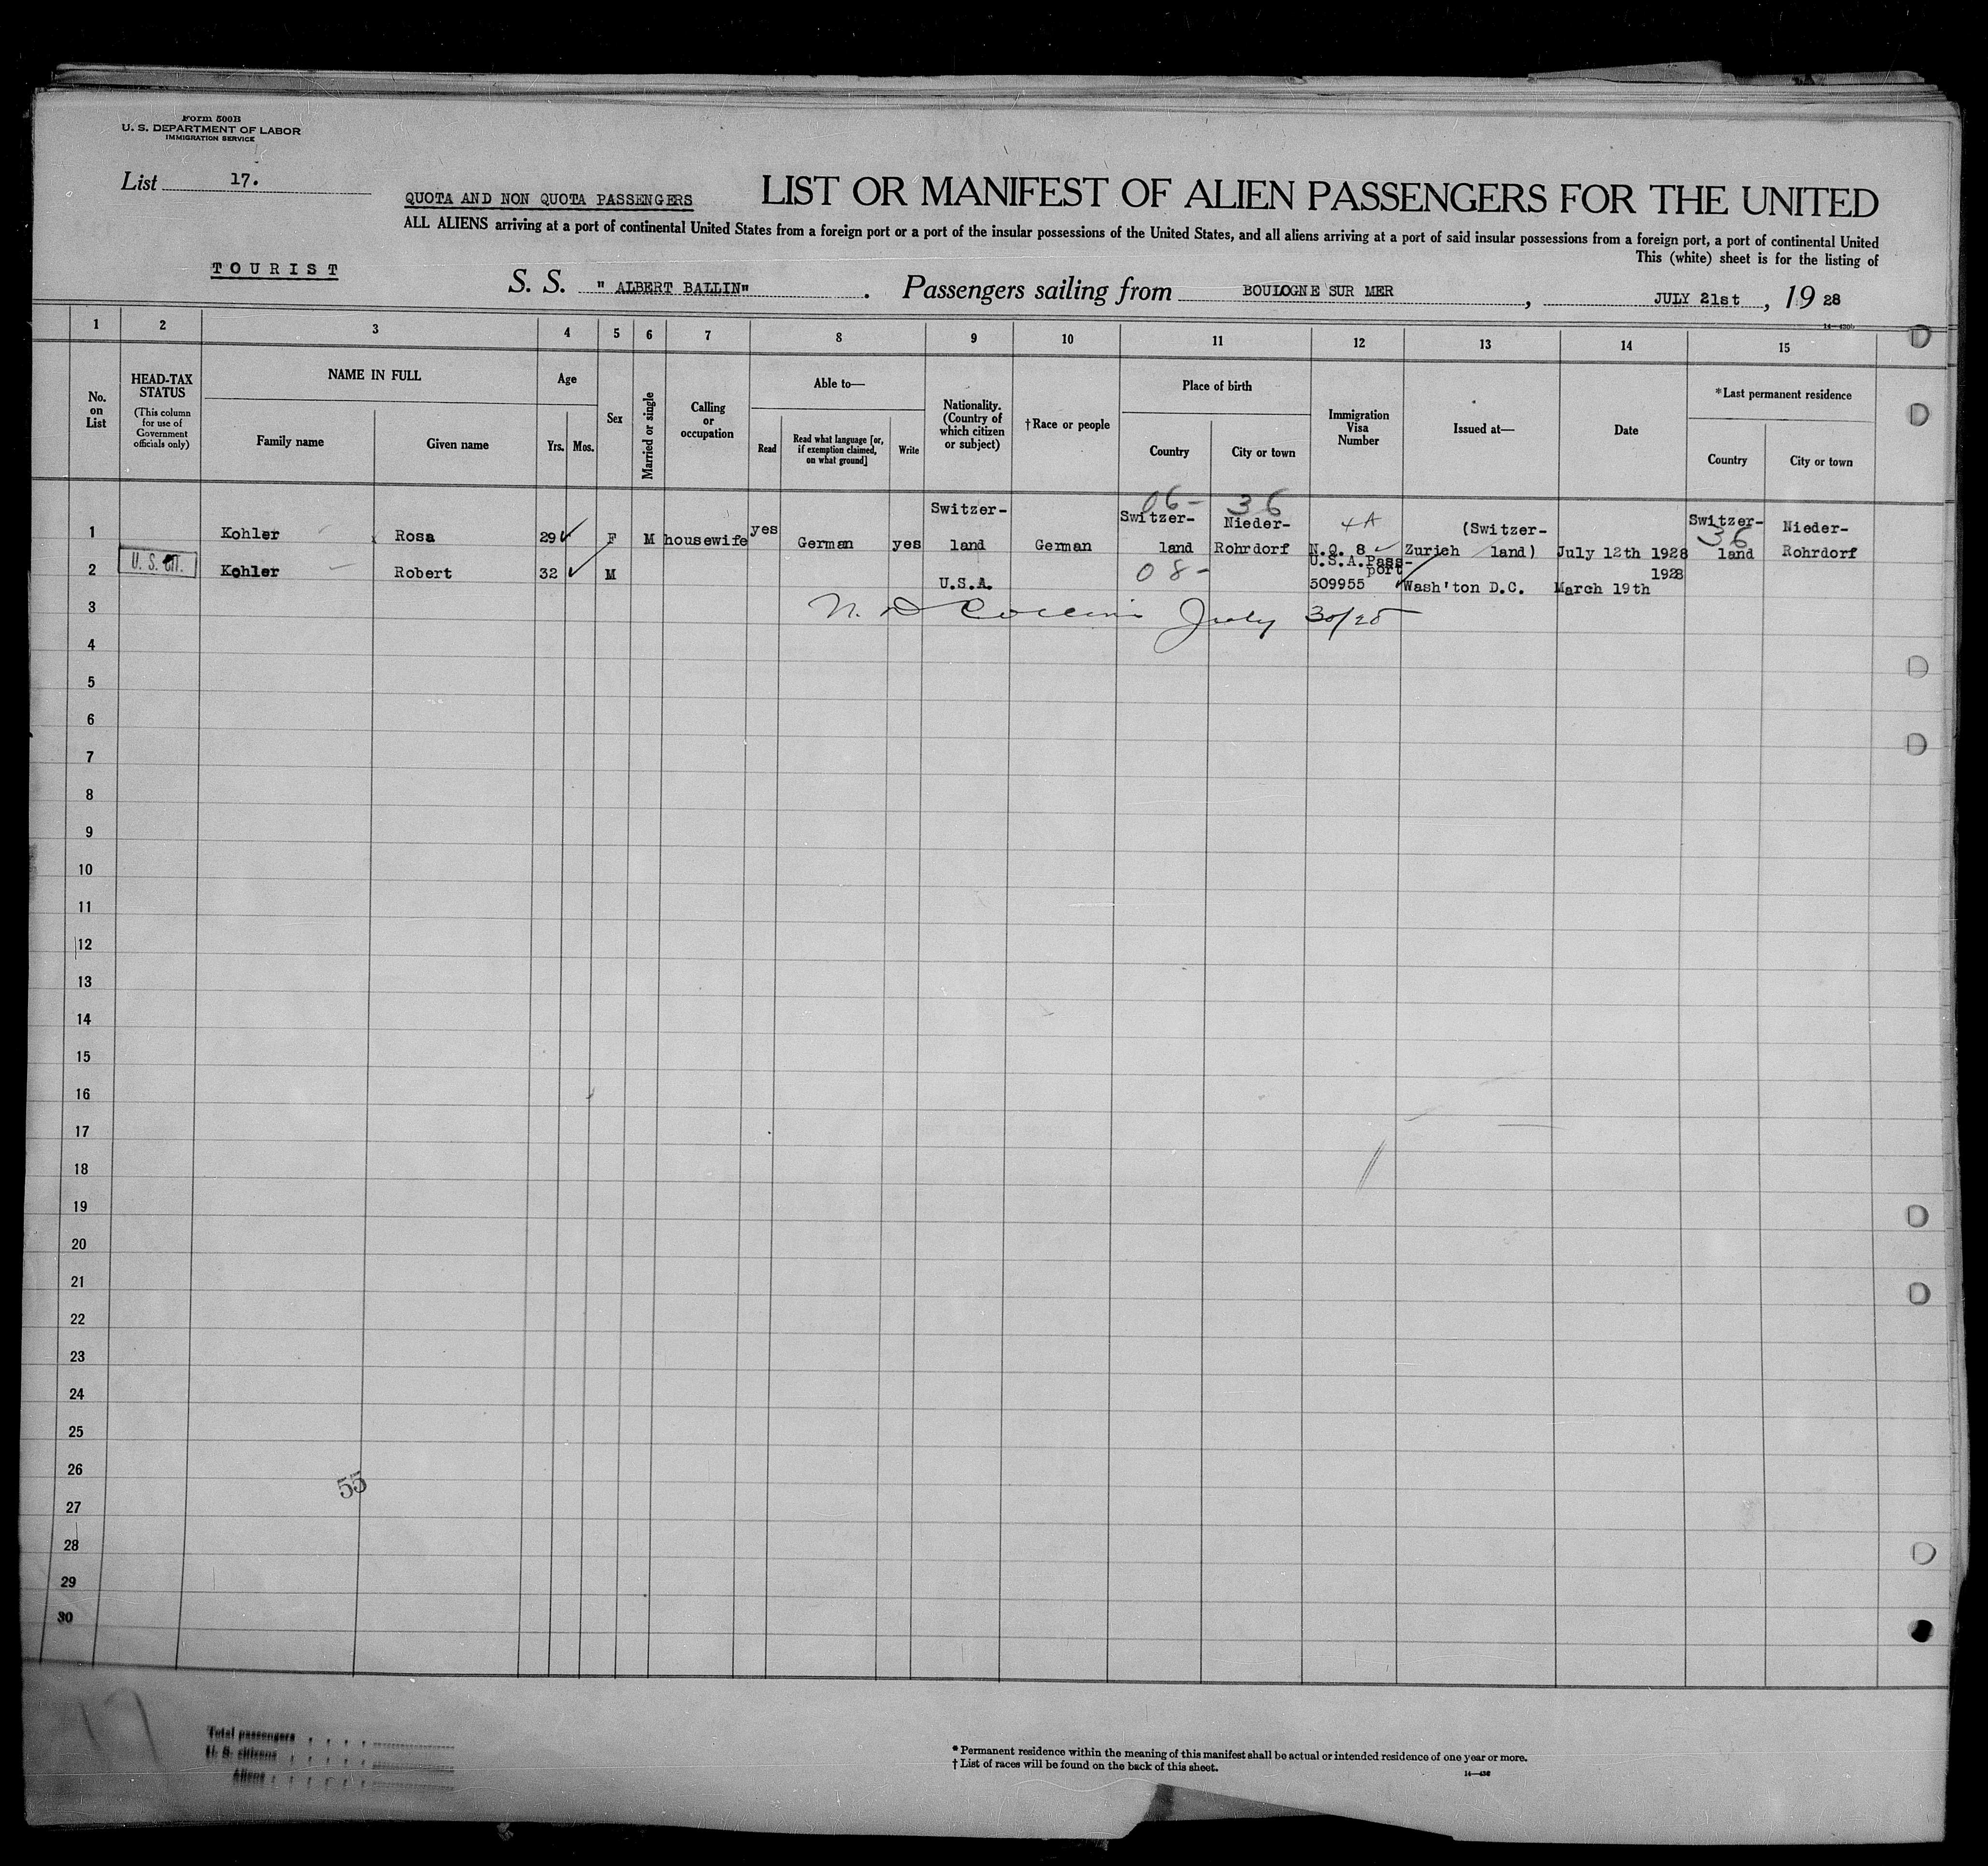 Form 500B
U. S. DEPARTMENT OF LABOR
IMMIGRATION SERVICE
List 17.
QUOTA AND NON QUOTA PASSENGERS
LIST OR MANIFEST OF ALIEN PASSENGERS FOR THE UNITED
ALL ALIENS arriving at a port of continental United States from a foreign port or a port of the insular possessions of the United States, and all aliens arriving at a port of said insular possessions from a foreign port, a port of continental United
This (white) sheet is for the listing of
TOURIST
S. S. " ALBERT BALLIN" . Passengers sailing from BOULOGNE SUR MER , JULY 21st , 19 28
1 2 3 4 5 6 7 8 9 10 11 12 13 14 15
No. on List
HEAD-TAX STATUS
(This column for use of Government officials only)
NAME IN FULL
Family name
Given name
Age
Yrs. Mos.
Sex
Married or single
Calling or occupation
Able to—
Read
Read what language [or, if exemption claimed, on what ground]
Write
Nationality. (Country of which citizen or subject)
†Race or people
Place of birth
Country
City or town
Immigration Visa Number
Issued at—
Date
*Last permanent residence
Country
City or town
06- 36
4A
36
1 Kohler Rosa 29 F M housewife yes German yes Switzer-land German Switzer-land Nieder-Rohrdorf N.Q. 8 Zurich (Switzer-land) July 12th 1928 Switzer-land Nieder-Rohrdorf
U. S. CIT.
2 Kohler Robert 32 M U.S.A. 08- U.S.A.Pass-port 509955 Wash'ton D.C. March 19th 1928
3
July 30/28
4
5
6
7
8
9
10
11
12
13
14
15
16
17
18
19
20
21
22
23
24
25
26
55
27
28
29
30
Total passengers
U. S. citizens
Aliens
* Permanent residence within the meaning of this manifest shall be actual or intended residence of one year or more.
† List of races will be found on the back of this sheet.